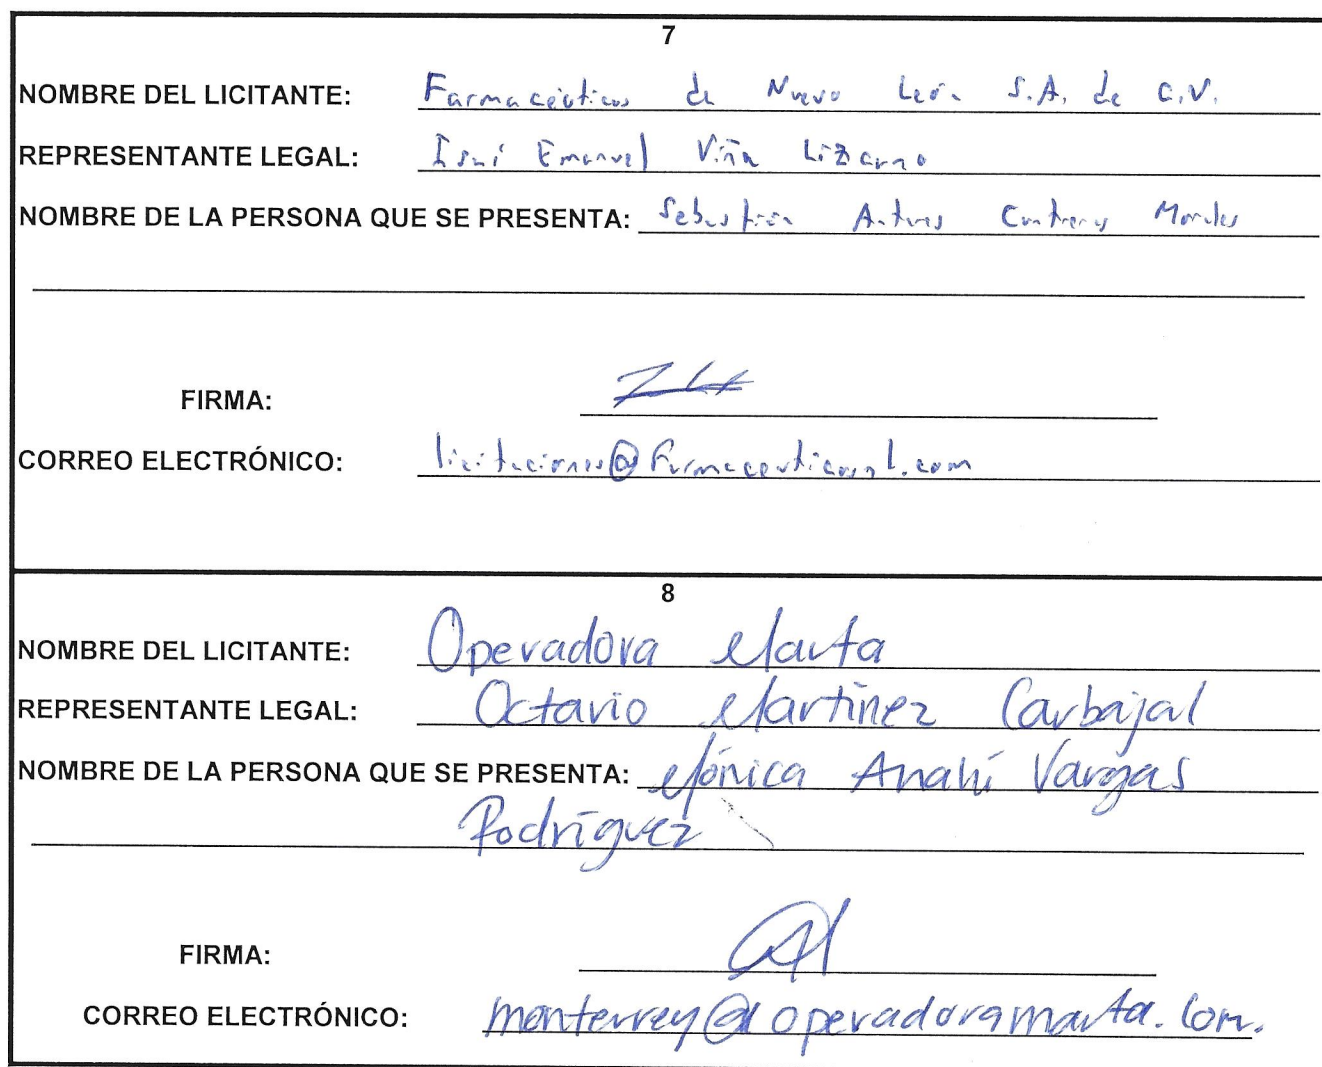 7
NOMBRE DEL LICITANTE: Farmacéuticos de Nuevo León S.A. de C.V.
REPRESENTANTE LEGAL: Emanuel Viña
NOMBRE DE LA PERSONA QUE SE PRESENTA: Sebastián Contreras Morales
FIRMA:
CORREO ELECTRÓNICO: licitaciones@farmaceuticosnl.com
8
NOMBRE DEL LICITANTE: Operadora Marta
REPRESENTANTE LEGAL: Octavio Martínez Carbajal
NOMBRE DE LA PERSONA QUE SE PRESENTA: Mónica Anahí Vargas
Rodríguez
FIRMA:
CORREO ELECTRÓNICO: monterrey@operadoramarta.com.